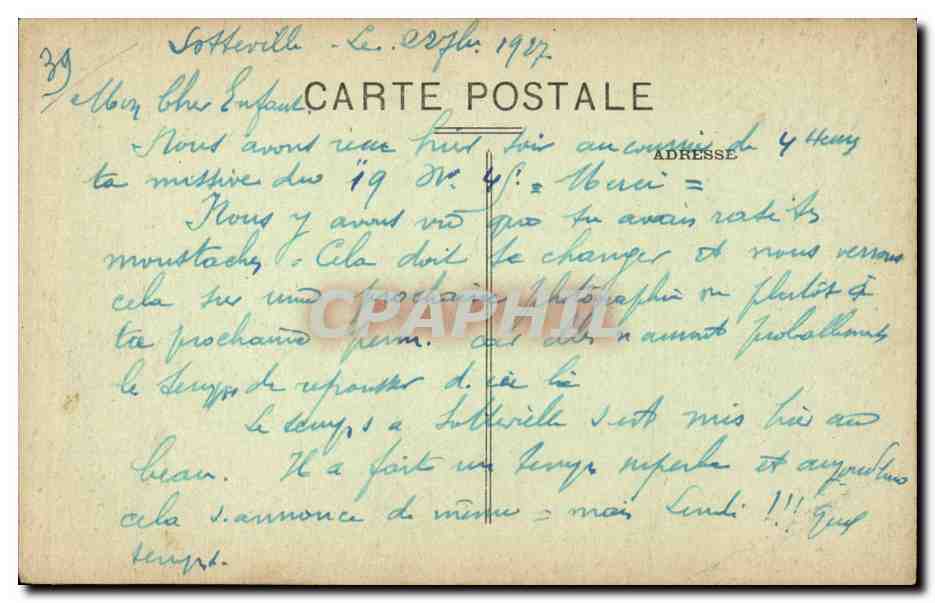 39
Sotteville - Le 1927
Mon Cher Enfant,
CARTE POSTALE
Nous avons reçu hier soir au courrier de 4 Heures
ADRESSE
ta missive du 19 No 45 = Merci =
Nous y avons vu que tu avais rasé tes
moustaches. Cela doit te changer et nous verrons
cela sur une prochaine photographie ou plutôt à
ta prochaine perm. car elles n'auront probablement
le temps de repousser d'ici là
CPAPHIL
Le temps à Sotteville s'est mis hier au
beau. Il a fait un temps superbe et aujourd'hui
cela s'annonce de même = mais Lundi !!! Quel
temps.